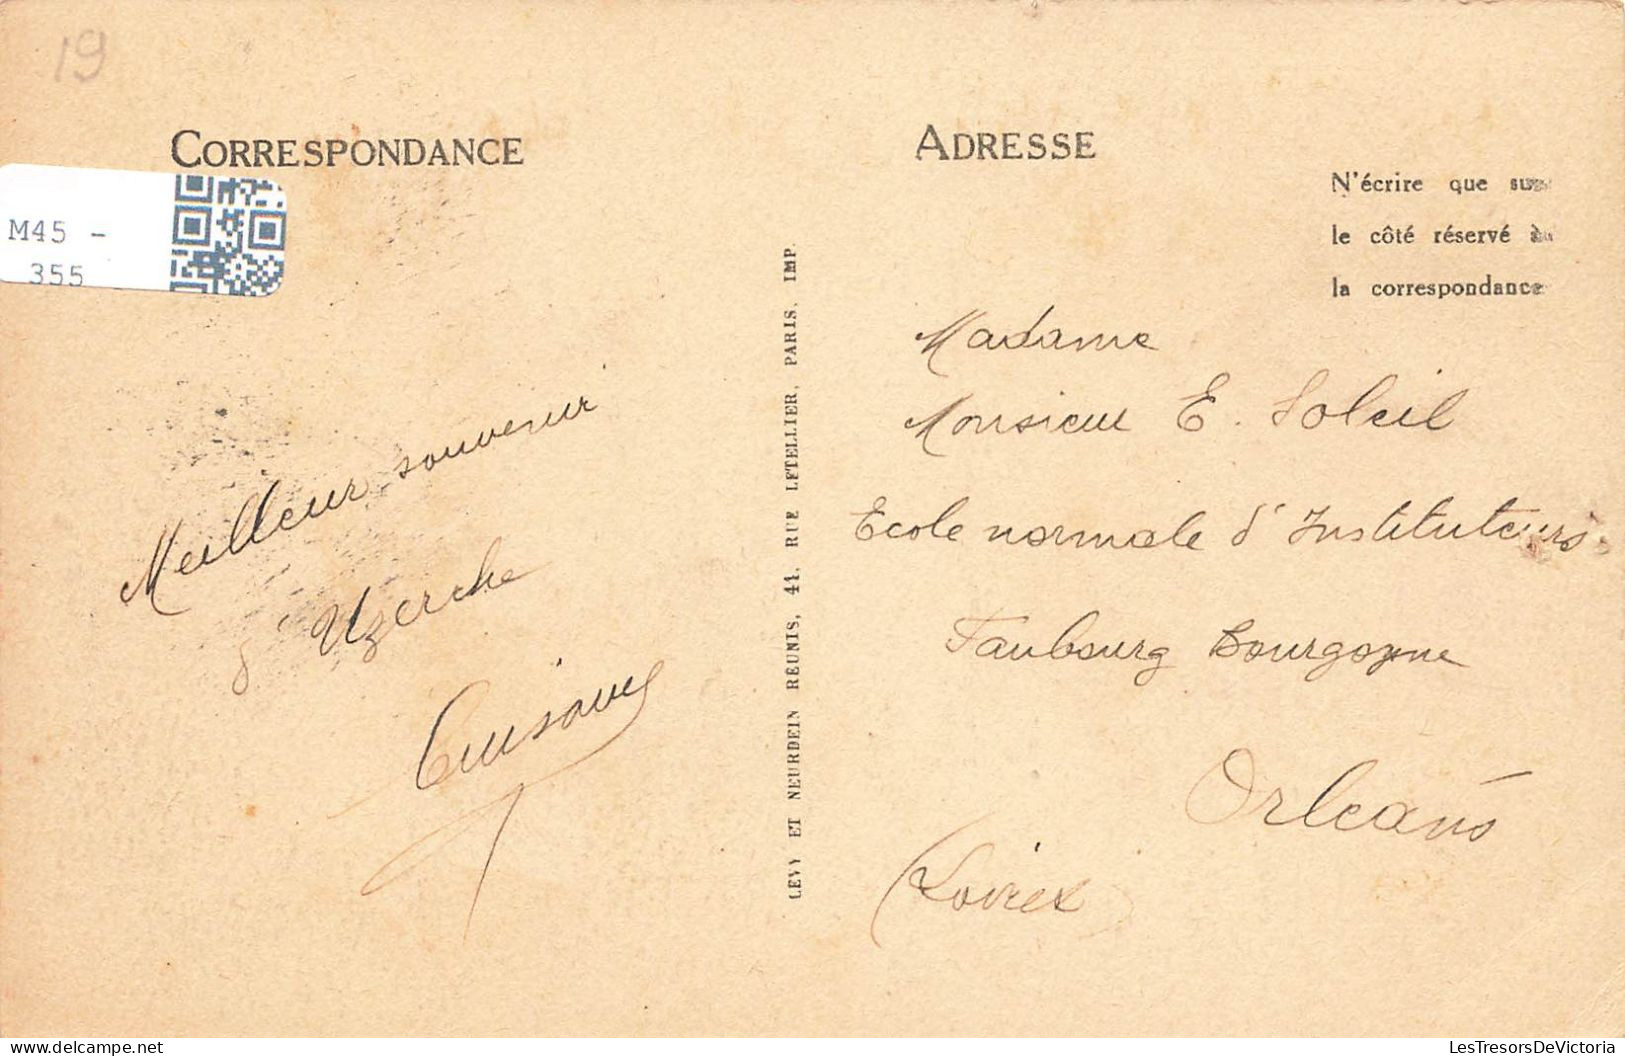 19
CORRESPONDANCE
M45 -
355
Meilleur souvenir
d'Uzerche
LEVY ET NEURDEIN RÉUNIS, 44, RUE LETELLIER, PARIS, IMP.
ADRESSE
N'écrire que sur
le côté réservé à
la correspondance
Madame
Monsieur E. Soleil
Ecole normale d'Instituteurs
Faubourg Bourgogne
Orléans
(Loiret)
LesTresorsDeVictoria